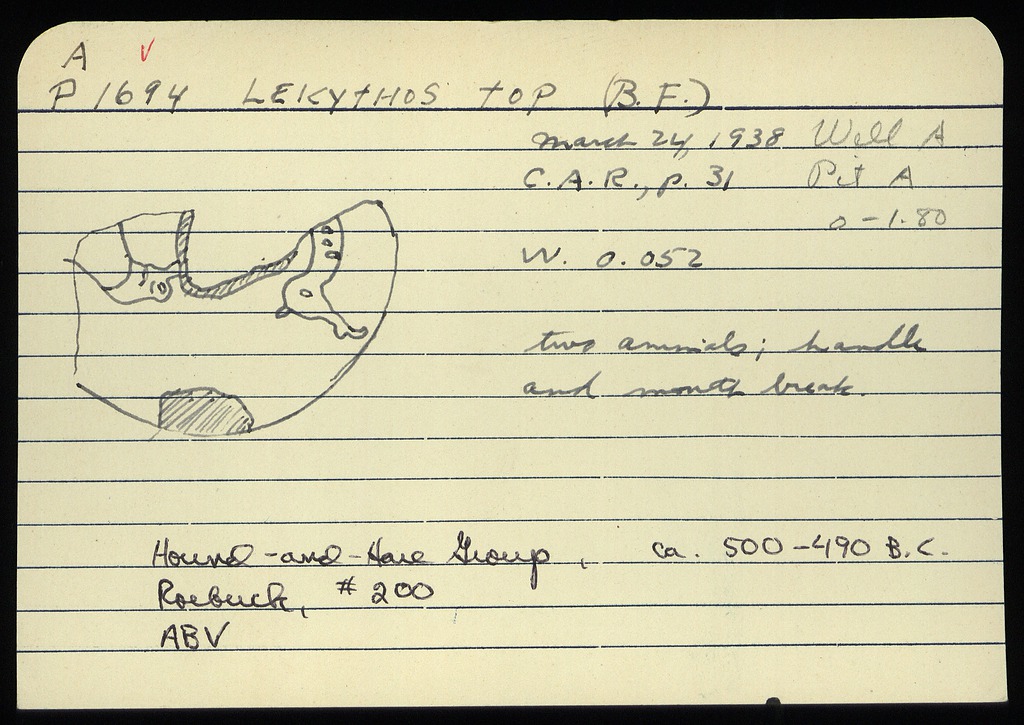 A
P 1694 LEKYTHOS TOP (B.F.)
March 24, 1938 Well A
C.A.R., p. 31 Pit A
0-1.80
W. 0.052
two animals; handle
and mouth break.
Hound-and-Hare Group, ca. 500-490 B.C.
Roebuck, # 200
ABV